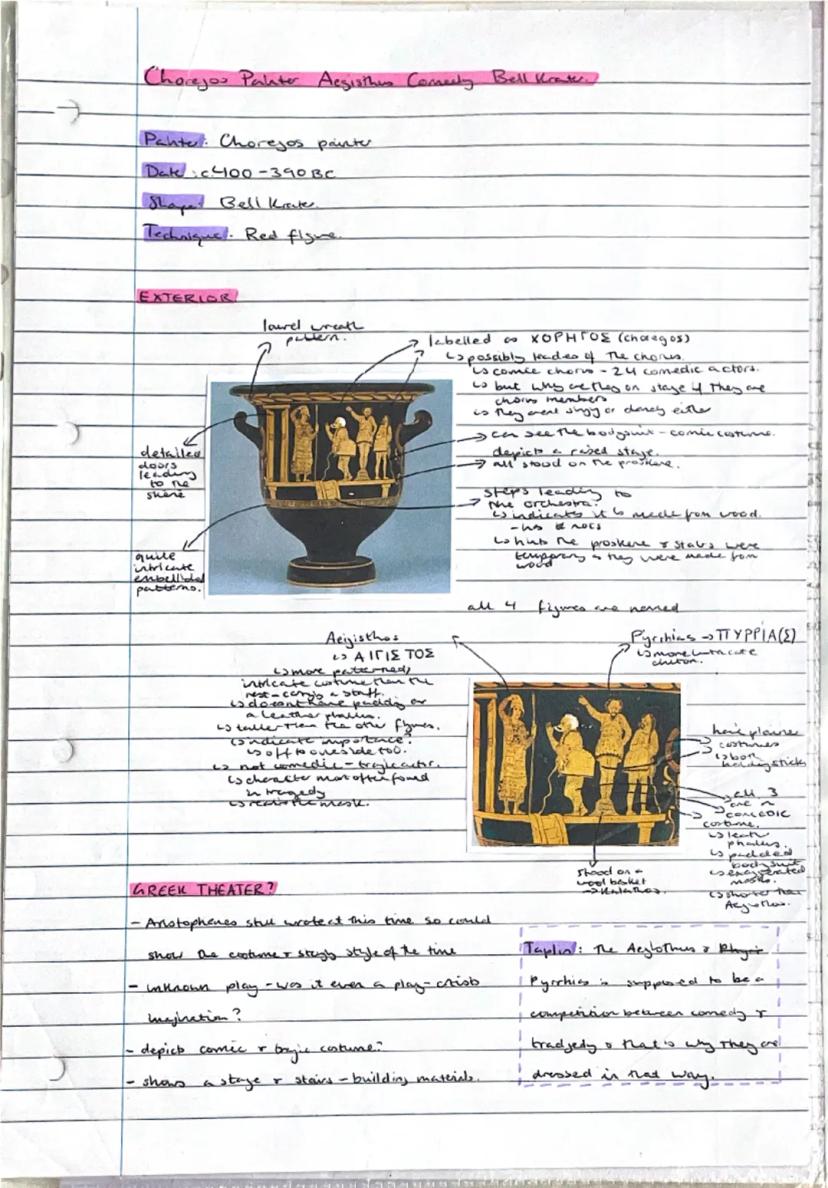 Choregos Painter Aegisthus Comedy Bell Krater.
Painter: Choregos painter
Date: c400-390 BC
Shape: Bell Krater.
Technique: Red figure.
EXTERIOR
laurel wreath
pattern.
detailed
doors
leading
to the
skene
quite
intricate
embellished
patterns.
labelled as ΧΟΡΗΓΟΣ (choregos)
↳ possibly leaders of the chorus.
↳ comic chorus - 24 comedic actors.
↳ but why are they on stage if they are
chorus members
↳ they arent singing or dancing either
can see the bodysuit - comic costume.
depicts a raised stage.
all stood on the proskene.
steps leading to
the orchestra.
↳ indicates it is made from wood.
↳ hints the proskene & stairs were
temporary as they were made from
wood
all 4 figures are named
Aegisthos
↳ ΑΙΓΙΣΤΟΣ
↳ more patterned,
intricate costume than the
rest - carrys a staff.
↳ doesnt have padding or
a leather phallus.
↳ taller than the other figures.
↳ indicate importance?
↳ off to one side too.
↳ not comedic - tragic actor.
↳ character most often found
in tragedy
↳ realistic mask.
Pyrrhias → ΠΥΡΡΙΑ(Σ)
↳ more intricate
chiton.
have plainer
costumes
↳ both
holding sticks
all 3
are in
comedic
costume.
↳ leather
phallus.
↳ padded
bodysuit
↳ exaggerated
masks.
↳ shorter than
Aegisthos.
stood on a
wool basket
→ kalathos.
GREEK THEATER?
- Aristophanes still wrote at this time so could
show the costume & staging style of the time
- unknown play - was it even a play - artists
imagination?
- depicts comic & tragic costume?
- shows a stage & stairs - building materials.
Taplin: The Aegisthus &
Pyrrhias is supposed to be a
competition between comedy &
tradjedy & that is why they are
dressed in that way.